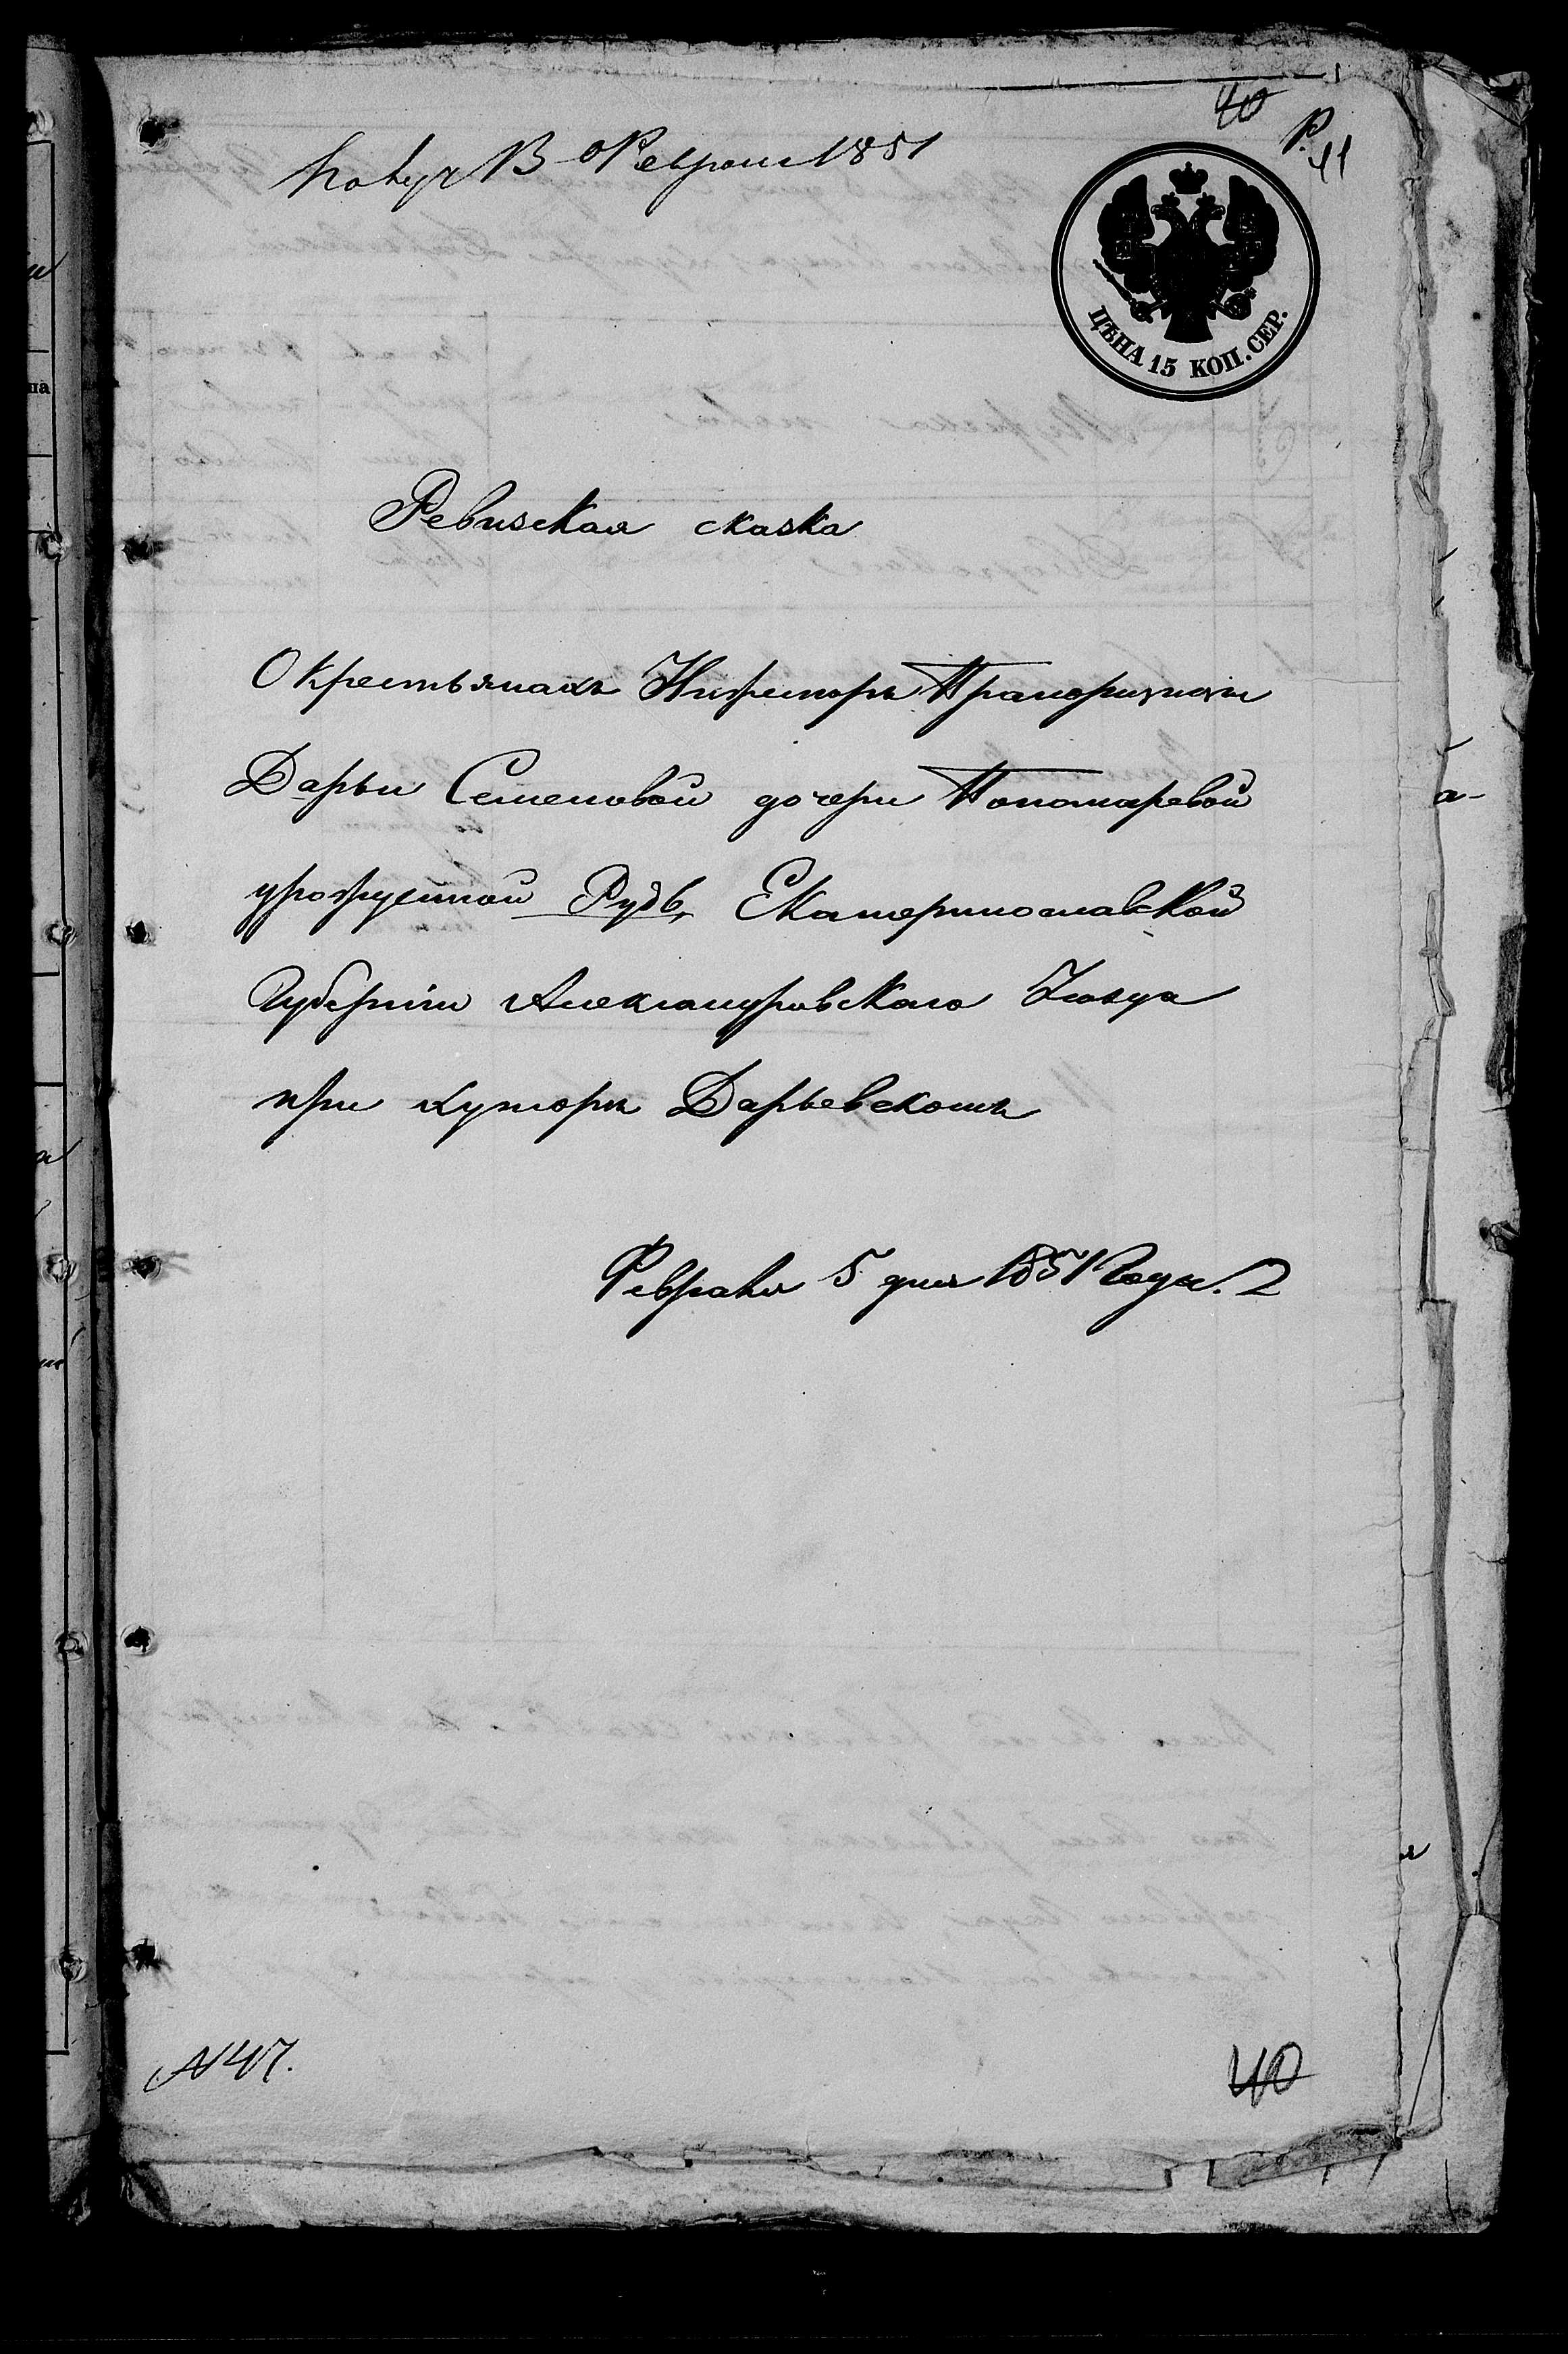 40
Р. 41
Февраля 1851
ЦѢНА 15 КОП. СЕР.
Ревизская сказка
О крестьянахъ Прапорщицы
Дарьи Семеновой дочери Пономаревой
урожденной Рудь, Екатеринославской
Губерніи Александровскаго Уезда
при хуторѣ Дарьевскомъ
Февраля 5 дня 1851 Года.
N 47.
40